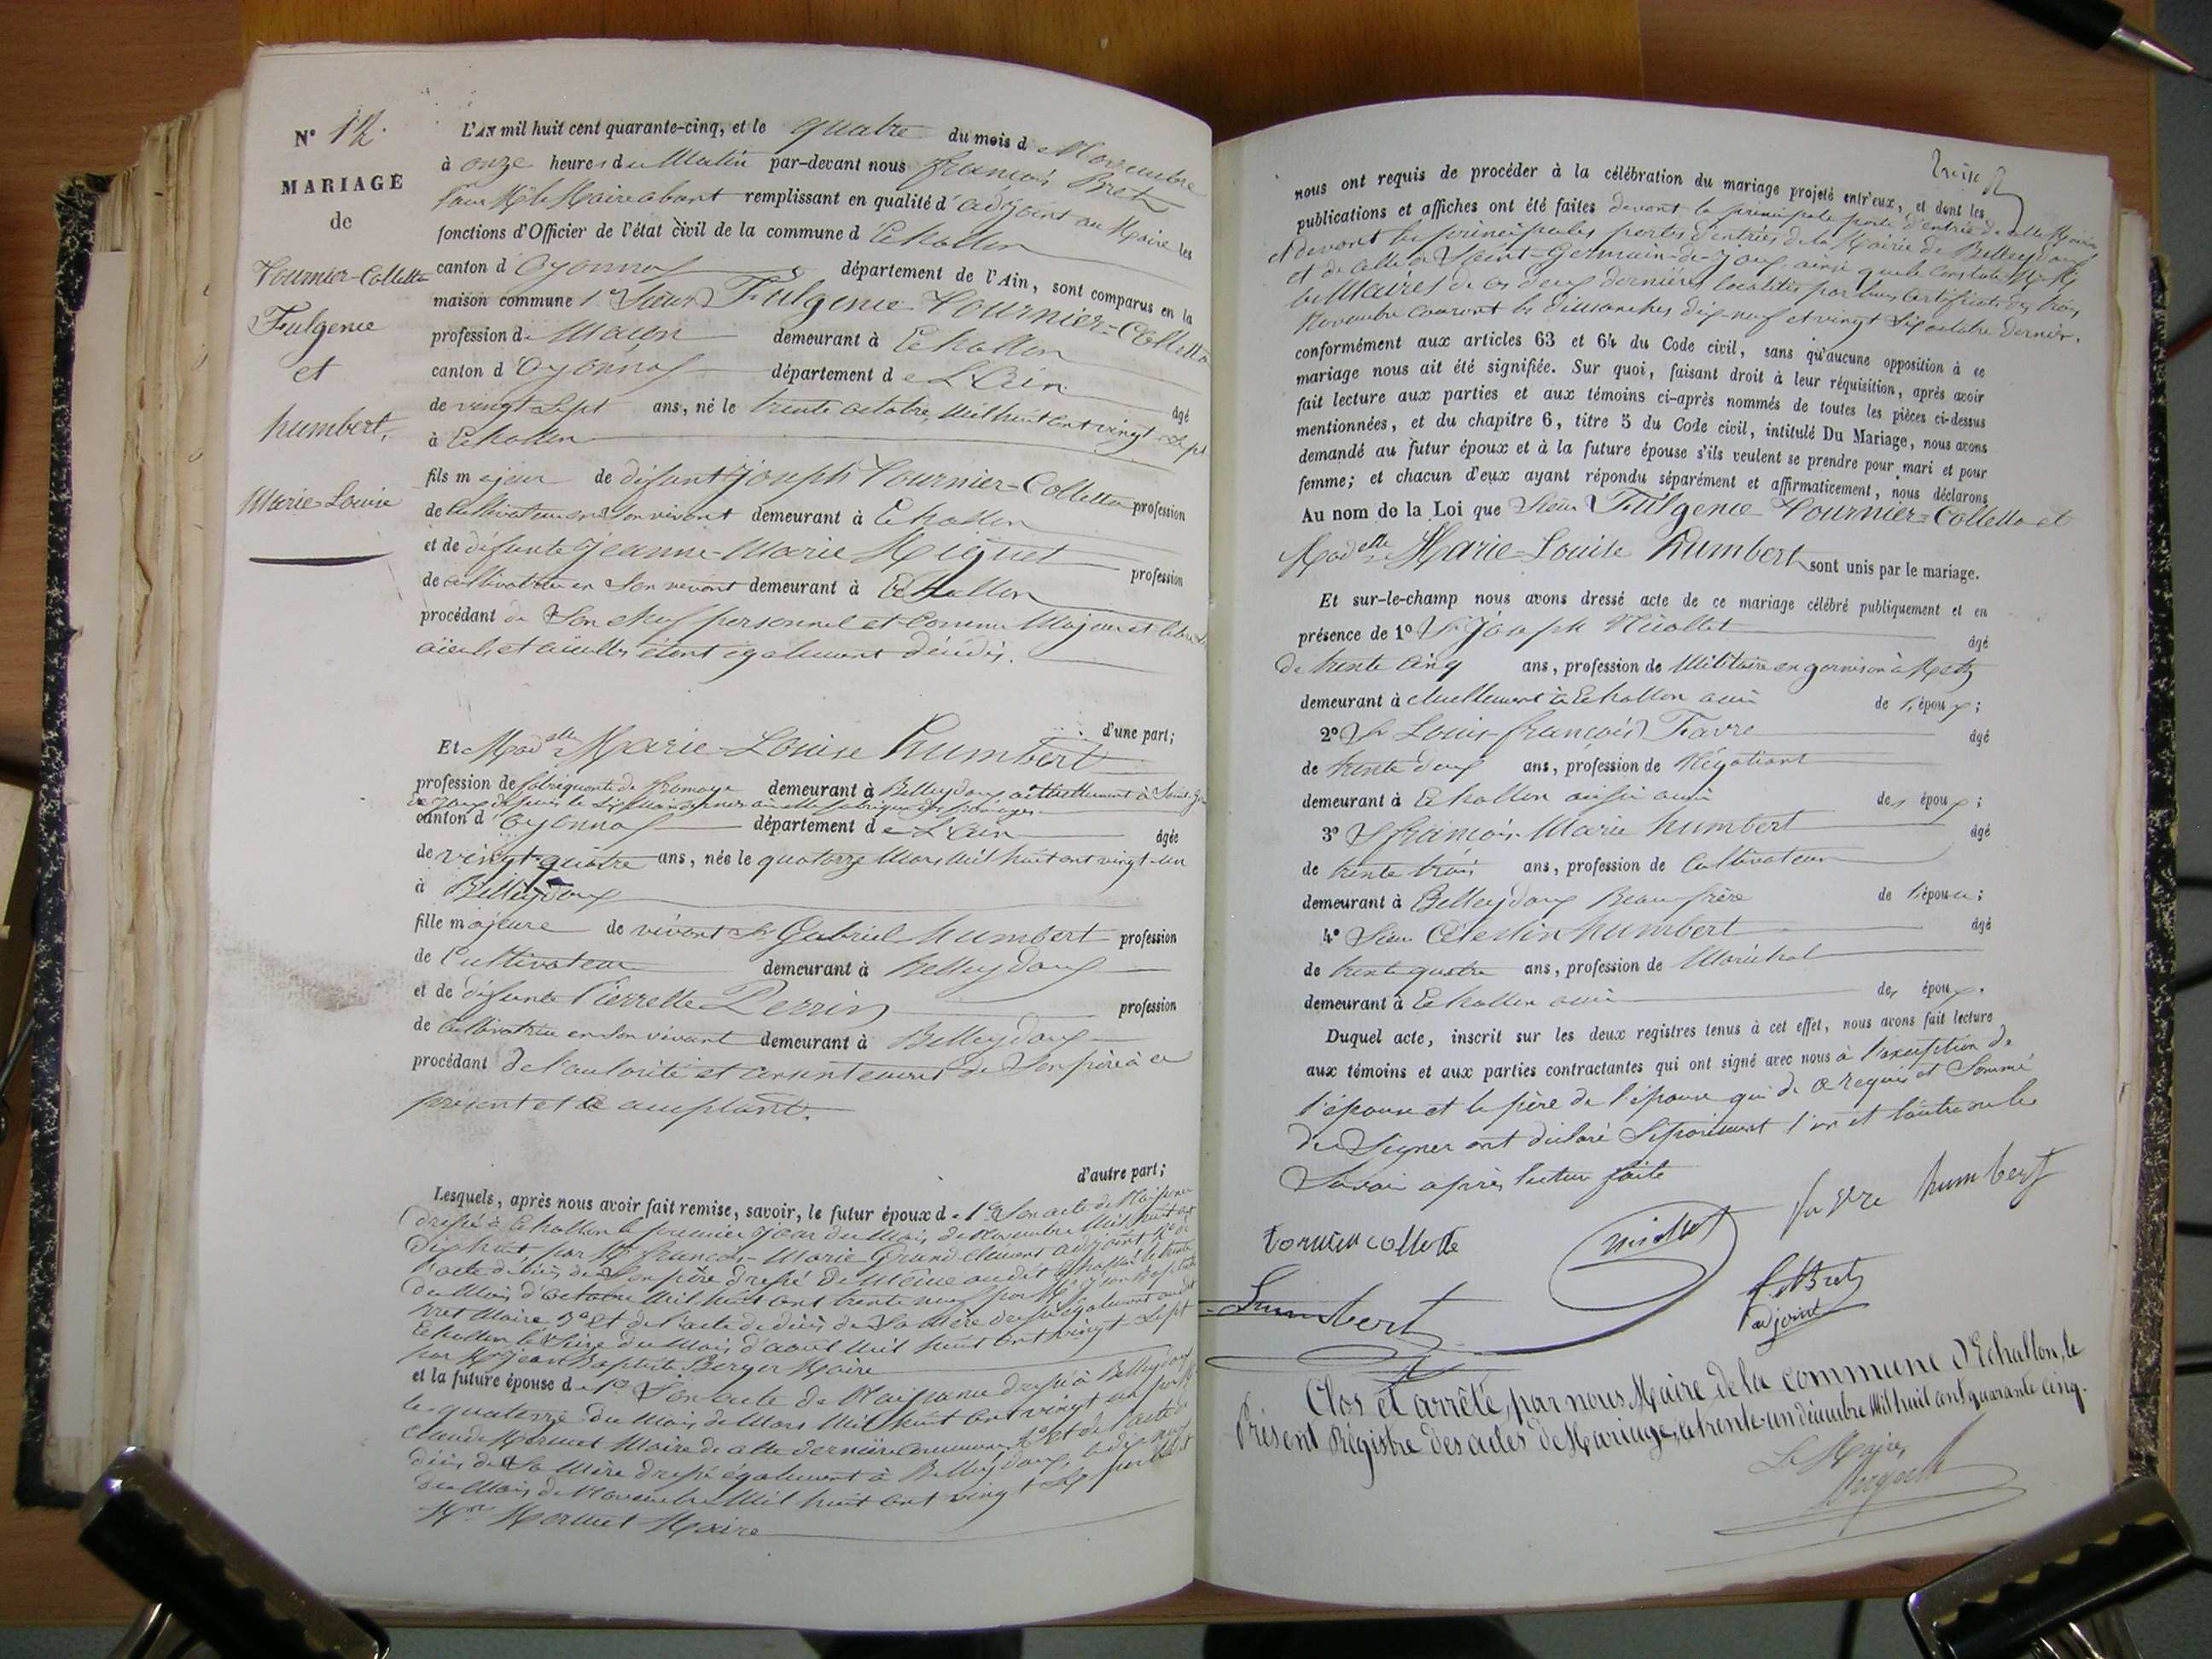 N° 12.
MARIAGE
de
Tournier-Colletta
Fulgence
et
humbert,
Marie-Louise
L'AN mil huit cent quarante-cinq, et le quatre du mois de Novembre
à onze heures du Matin par-devant nous françois Bret
pour Mr le Maire absent remplissant en qualité d'adjoint au Maire les
fonctions d'Officier de l'état civil de la commune d'Echallon
canton d'Oyonnax département de l'Ain, sont comparus en la
maison commune 1° Sieur Fulgence Tournier-Colletta
profession de Maçon demeurant à Echallon
canton d'Oyonnax département de L'Ain
âgé
de vingt-sept ans, né le trente octobre, Mil huit cent vingt-sept
à Echallon
fils majeur de défunt joseph Tournier-Colletta profession
de Cultivateur en son vivant demeurant à Echallon
et de défunte jeanne-Marie Miguet profession
de cultivatrice en son vivant demeurant à Echallon
procédant de Son chef personnel et comme Majeur et libre, Ses
aïeuls et aïeulles étant également décédés.
d'une part;
Et Madelle Marie-Louise humbert
profession de fabriquante de fromage demeurant à Belleydoux actuellement à Saint-Ger
de joux depuis le dix Mai dernier où elle fabrique des fromages
canton d'Oyonnax département de L'Ain âgée
de vingt-quatre ans, née le quatorze Mars Mil huit cent vingt-un
à Belleydoux
fille majeure de vivant Sr Gabriel humbert profession
de Cultivateur demeurant à Belleydoux
et de défunte Pierrette Perrin profession
de Cultivatrice en son vivant demeurant à Belleydoux
procédant de l'autorité et consentement de Son père à ce
présent et ce acceptant.
d'autre part;
Lesquels, après nous avoir fait remise, savoir, le futur époux de 1° Son acte de Naissance
dressé à Echallon le premier jour du Mois de Novembre Mil huit cent
dix huit, par Mr françois-Marie Grand-clément adjoint 2° de
l'acte de décès de Son père dressé de Même audit Echallon le trente
du Mois d'octobre Mil huit cent trente neuf par Mr jean Baptiste
Bret Maire 3° Et de l'acte de décès de Sa Mère dressé également audit
Echallon le Seize du Mois d'aout Mil huit cent vingt-Sept
par Mr jean Baptiste Berger Maire
et la future épouse de 1° Son acte de Naissance dressé à Belleydoux
le quatorze du Mois de Mars Mil huit cent vingt un par Mr
Claude Mermet Maire de cette dernière Commune, 2° Et de l'acte de
décès de Sa Mère dressé également à Belleydoux, le dix neuf
du Mois de Novembre Mil huit cent vingt Six par ledit
Mr Mermet Maire
treize
nous ont requis de procéder à la célébration du mariage projeté entr'eux, et dont les
publications et affiches ont été faites devant la principale porte d'entrée de cette Mairie
et devant les principales portes d'entrées de la Mairie de Belleydoux
et de celle de Saint-Germain-de-joux, ainsi que le constate MM
les Maires de ces deux dernières localités par leurs certificats des trois
Novembre courant les dimanches dix-neuf et vingt Six octobre dernier.
conformément aux articles 63 et 64 du Code civil, sans qu'aucune opposition à ce
mariage nous ait été signifiée. Sur quoi, faisant droit à leur réquisition, après avoir
fait lecture aux parties et aux témoins ci-après nommés de toutes les pièces ci-dessus
mentionnées, et du chapitre 6, titre 5 du Code civil, intitulé Du Mariage, nous avons
demandé au futur époux et à la future épouse s'ils veulent se prendre pour mari et pour
femme; et chacun d'eux ayant répondu séparément et affirmativement, nous déclarons
Au nom de la Loi que Sieur Fulgence Tournier-Colletta et
Madelle Marie-Louise humbert sont unis par le mariage.
Et sur-le-champ nous avons dressé acte de ce mariage célébré publiquement et en
présence de 1° Sr Joseph Nicollet âgé
de trente cinq ans, profession de Militaire en garnison à Metz
demeurant actuellement à Echallon ami de l'époux;
2° Sr Louis-françois Favre âgé
de trente deux ans, profession de Négotiant
demeurant à Echallon aussi ami des époux;
3° Sr françois-Marie humbert âgé
de trente trois ans, profession de Cultivateur
demeurant à Belleydoux Beau frère de l'épouse;
4° Sieur Célestin humbert âgé
de trente quatre ans, profession de Maréchal
demeurant à Echallon ami des époux.
Duquel acte, inscrit sur les deux registres tenus à cet effet, nous avons fait lecture
aux témoins et aux parties contractantes qui ont signé avec nous à l'exception de
l'épouse et le père de l'épouse qui de ce requis et Sommé
de Signer ont déclaré Séparément l'un et l'autre ne le
Savoir après lecture faite
tornier collette
nicollet
favre humbert
humbert
f. Bret
adjoint
Clos et arrêté, par nous Maire de la commune d'Echallon, le
Présent Régistre des actes de Mariage, le trente-un décembre Mil huit cent quarante cinq.
Le Maire,